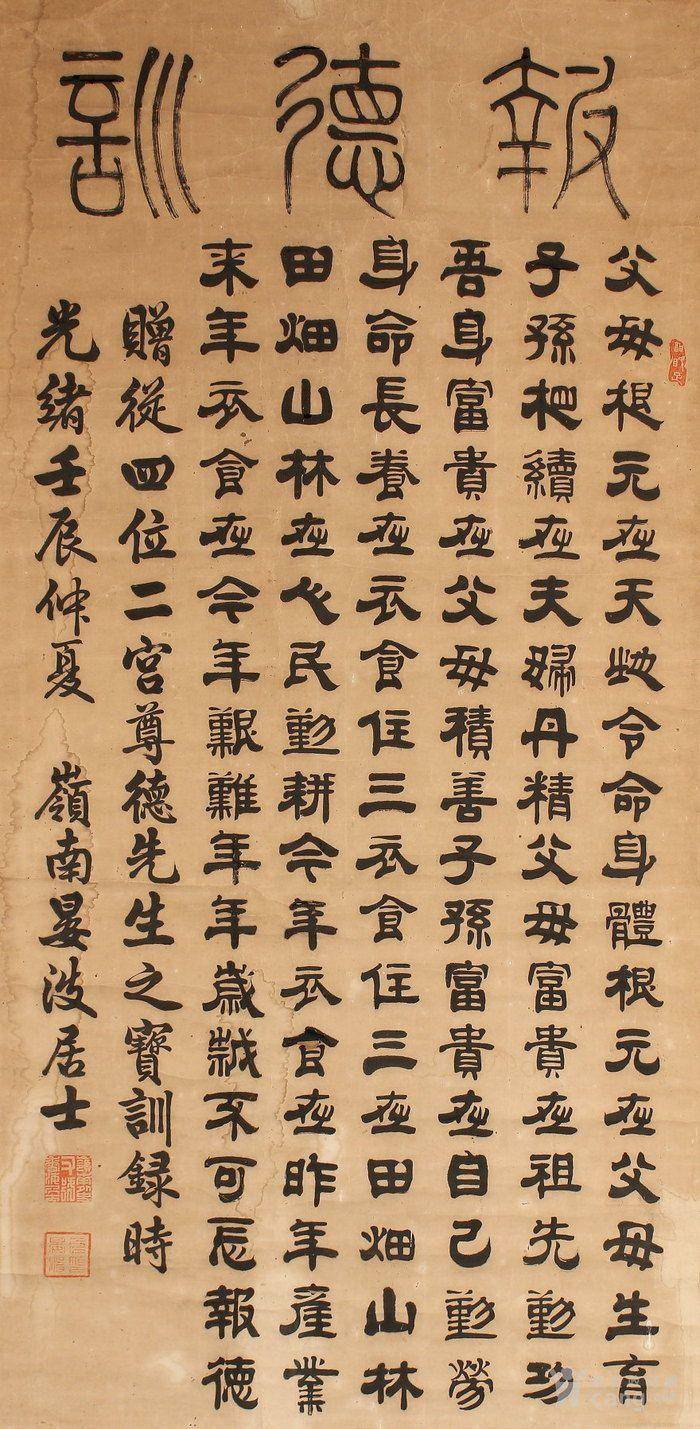 報德訓
父母根元在天地令命身體根元在父母生育
子孫相續在夫婦丹精父母富貴在祖先勤功
吾身富貴在父母積善子孫富貴在自己勤勞
身命長養在衣食住三衣食住三在田畑山林
田畑山林在人民勤耕今年衣食在昨年產業
来年衣食在今年艱難年年歲歲不可忘報徳
贈從四位二宮尊德先生之寶訓録時
光緒壬辰仲夏 嶺南晏波居士